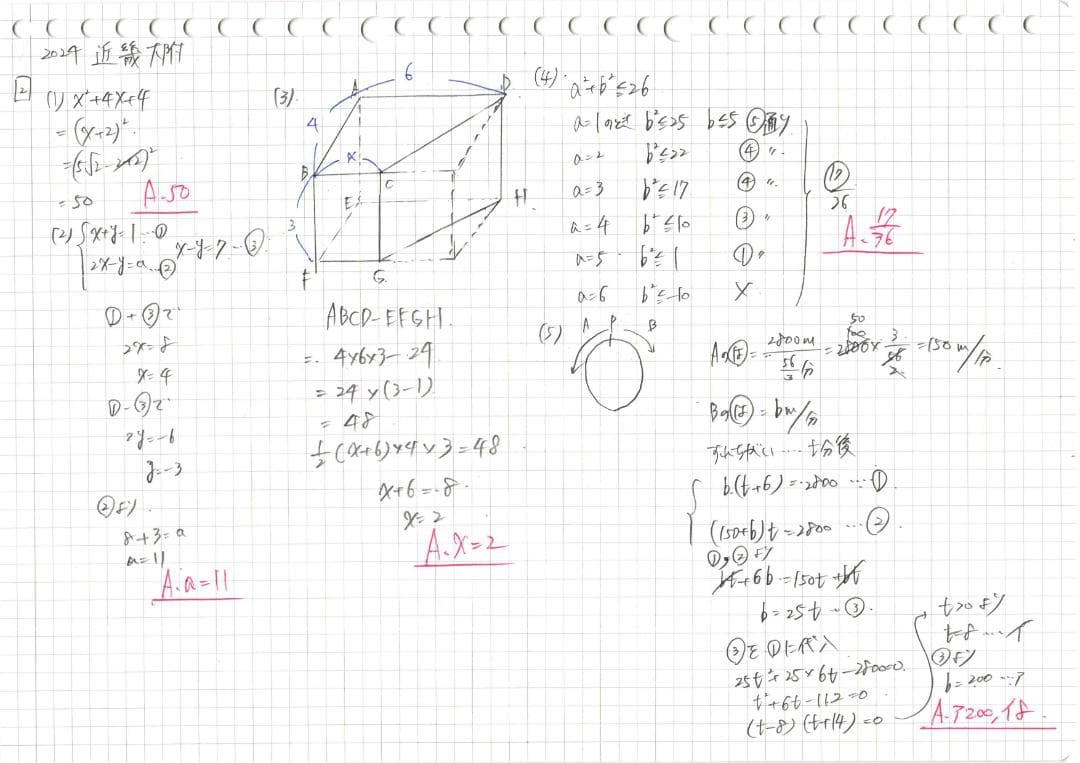 2024 近畿大附
2
(1) x²+4x+4
= (x+2)²
= (5√2-2+2)²
= 50
A.50
(2) { x+y=1…①
2x-y=a…②
x-y=7…③
①+③で
2x=8
x=4
①-③で
2y=-6
y=-3
②より
8+3=a
a=11
A.a=11
(3).
6
A
D
4
x
B
C
E
H
3
F
G
ABCD-EFGH.
=. 4×6×3-24
= 24×(3-1)
= 48
1/2(x+6)×4×3=48
x+6=8
x=2
A.x=2
(4). a²+b²≦26
a=1のとき b²≦25 b≦5 ⑤通り
a=2 b²≦22 ④〃
a=3 b²≦17 ④〃
a=4 b²≦10 ③〃
a=5 b²≦1 ①〃
a=6 b²≦-10 ×
⑰/36
A.17/36
(5)
A P B
Aの速=2800m/(56/3)分=2800×3/56=150m/分
50
100
2
Bの速=bm/分
すれちがい……t分後
{ b.(t+6)=2800…①.
(150+b)t=2800…②.
①,②より
bt+6b=150t+bt
b=25t…③.
③を①に代入
25t²+25×6t-2800=0.
t²+6t-112=0
(t-8)(t+14)=0
t>0より
t=8…イ
③より
b=200…ア
A.ア200,イ8.